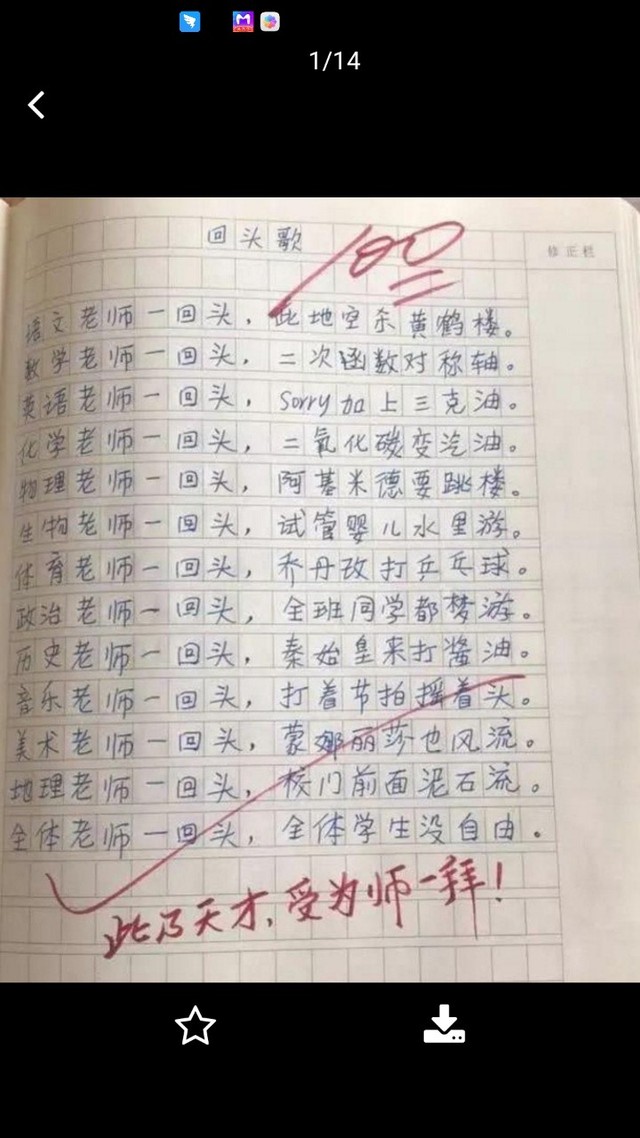 1/14
回头歌
100
修正栏
语文老师一回头，此地空余黄鹤楼。
数学老师一回头，二次函数对称轴。
英语老师一回头，sorry加上三克油。
化学老师一回头，二氧化碳变汽油。
物理老师一回头，阿基米德要跳楼。
生物老师一回头，试管婴儿水里游。
体育老师一回头，乔丹改打乒乓球。
政治老师一回头，全班同学都梦游。
历史老师一回头，秦始皇来打酱油。
音乐老师一回头，打着节拍摇着头。
美术老师一回头，蒙娜丽莎也风流。
地理老师一回头，校门前面泥石流。
全体老师一回头，全体学生没自由．
此乃天才，受为师一拜！